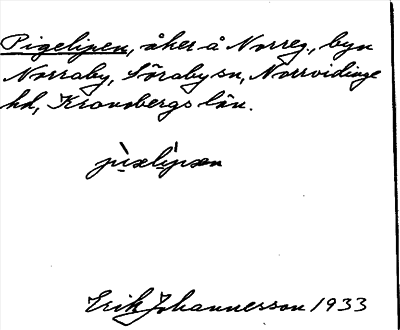 Pigelipen, åker å Norreg., byn
Norraby, Söraby sn, Norrvidinge
hd, Kronobergs län.
Erik Johannesson 1933